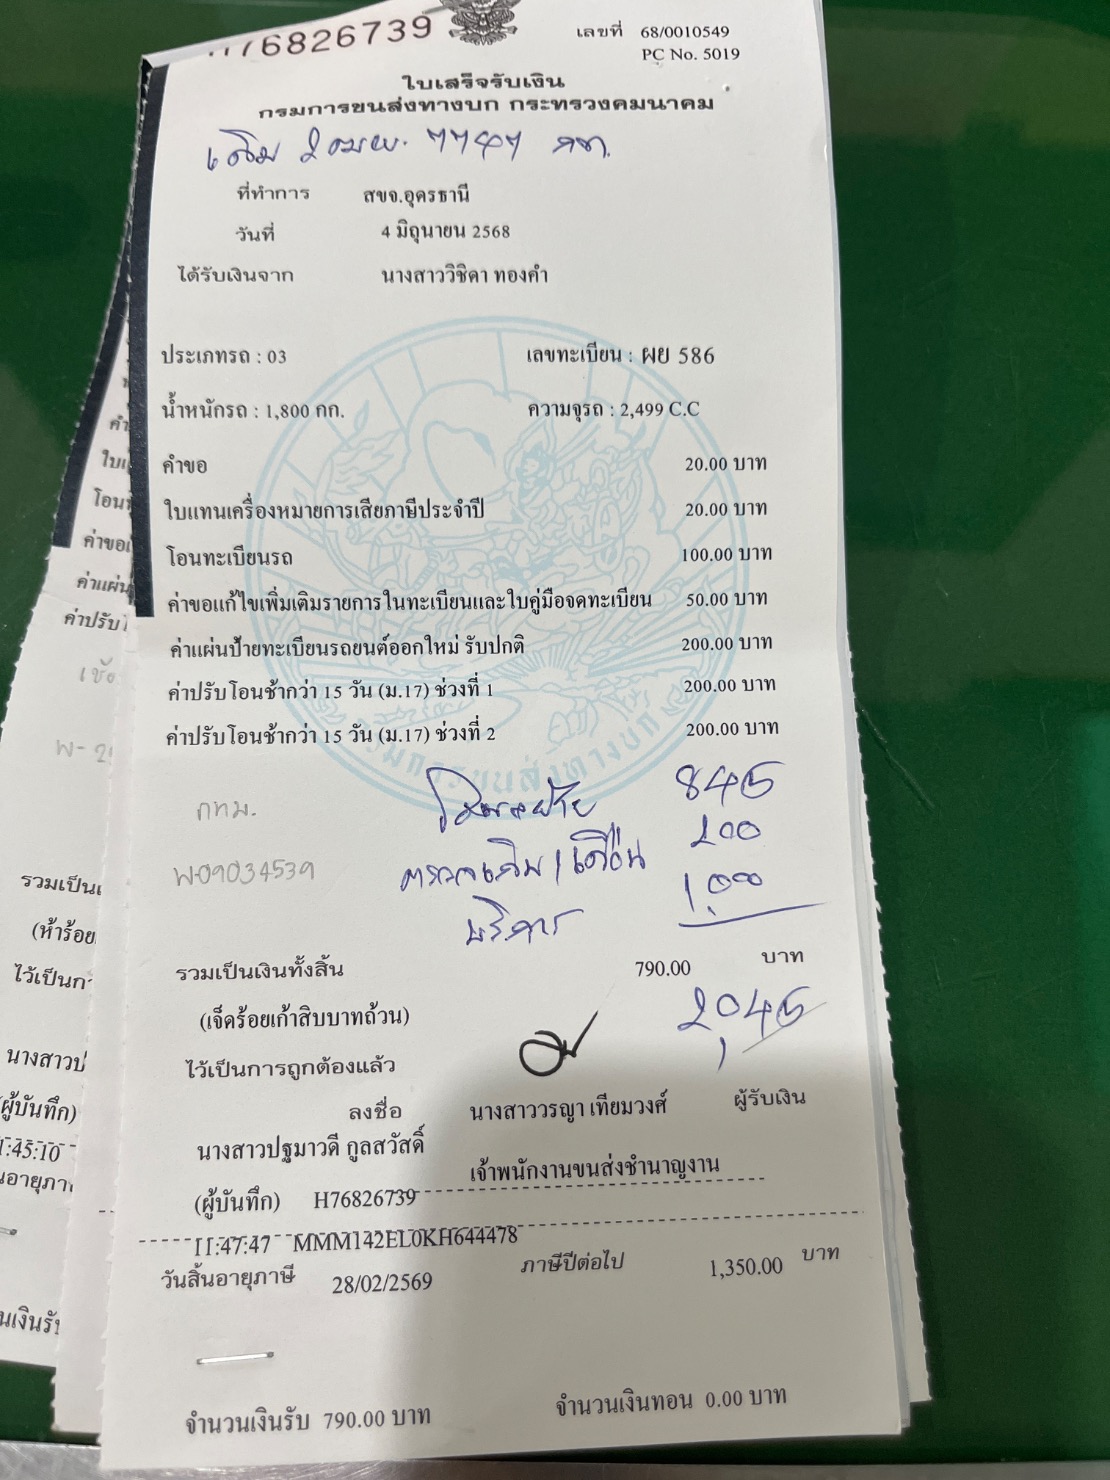 H76826739
เลขที่ 68/0010549
PC No. 5019
ใบเสร็จรับเงิน
กรมการขนส่งทางบก กระทรวงคมนาคม
เดิม 2ฒฌ. 7747 กท.
ที่ทำการ สขจ.อุดรธานี
วันที่ 4 มิถุนายน 2568
ได้รับเงินจาก นางสาววิชิดา ทองคำ
ประเภทรถ : 03 เลขทะเบียน : ผย 586
น้ำหนักรถ : 1,800 กก. ความจุรถ : 2,499 C.C
คำขอ 20.00 บาท
ใบแทนเครื่องหมายการเสียภาษีประจำปี 20.00 บาท
โอนทะเบียนรถ 100.00 บาท
ค่าขอแก้ไขเพิ่มเติมรายการในทะเบียนและใบคู่มือจดทะเบียน 50.00 บาท
ค่าแผ่นป้ายทะเบียนรถยนต์ออกใหม่ รับปกติ 200.00 บาท
ค่าปรับโอนช้ากว่า 15 วัน (ม.17) ช่วงที่ 1 200.00 บาท
ค่าปรับโอนช้ากว่า 15 วัน (ม.17) ช่วงที่ 2 200.00 บาท
845
กทม. 200
W09034539 1,000
บริการ
รวมเป็นเงินทั้งสิ้น 790.00 บาท
(เจ็ดร้อยเก้าสิบบาทถ้วน) 2,045
ไว้เป็นการถูกต้องแล้ว
ลงชื่อ นางสาววรญา เทียมวงศ์ ผู้รับเงิน
นางสาวปฐมาวดี กูลสวัสดิ์
เจ้าพนักงานขนส่งชำนาญงาน
(ผู้บันทึก) H76826739
11:47:47 MMM142EL0KH644478
วันสิ้นอายุภาษี 28/02/2569 ภาษีปีต่อไป 1,350.00 บาท
จำนวนเงินรับ 790.00 บาท จำนวนเงินทอน 0.00 บาท